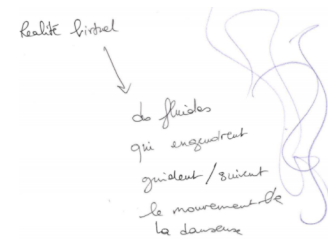 Realité Virtuel
des fluides
qui engendrent
guident / suivent
le mouvement de
la danseuse